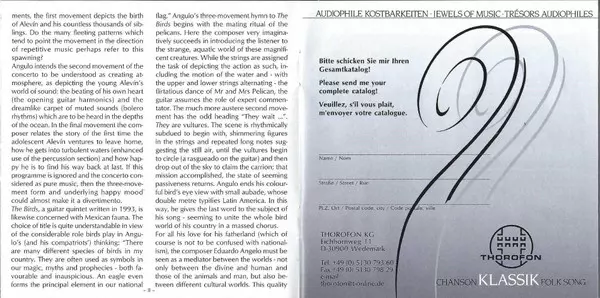 ments, the first movement depicts the birth
of Alevin and his countless thousands of sib-
lings. Do the many fleeting patterns which
tend to point the movement in the direction
of repetitive music perhaps refer to this
spawning?
Angulo intends the second movement of the
concerto to be understood as creating at-
mosphere, as depicting the young Alevin's
world of sound: the beating of his own heart
(the opening guitar harmonics) and the
dreamlike carpet of muted sounds (bolero
rhythms) which are to be heard in the depths
of the ocean. In the final movement the com-
poser relates the story of the first time the
adolescent Alevin ventures to leave home,
how he gets into turbulent waters (enhanced
use of the percussion section) and how hap-
py he is to find his way back at last. If this
programme is ignored and the concerto con-
sidered as pure music, then the three-move-
ment form and underlying happy mood
could almost make it a divertimento.
The Birds, a guitar quintet written in 1993, is
likewise concerned with Mexican fauna. The
choice of title is quite understandable in view
of the considerable role birds play in Angu-
lo's (and his compatriots') thinking: "There
are many different species of birds in my
country. They are often used as symbols in
our magic, myths and prophecies - both fa-
vourable and inauspicious. An eagle even
forms the principal element in our national
- 8 -
flag." Angulo's three-movement hymn to The
Birds begins with the mating ritual of the
pelicans. Here the composer very imagina-
tively succeeds in introducing the listener to
the strange, aquatic world of these magnifi-
cent creatures. While the strings are assigned
the task of depicting the action as such, in-
cluding the motion of the water and - with
the upper and lower strings alternating - the
flirtatious dance of Mr and Mrs Pelican, the
guitar assumes the role of expert commen-
tator. The much more austere second move-
ment has the odd heading "They wait ...".
They are vultures. The scene is rhythmically
subdued to begin with, shimmering figures
in the strings and repeated long notes sug-
gesting the still air, until the vultures begin
to circle (a rasgueado on the guitar) and then
drop out of the sky to claim the carrion; that
mission accomplished, the state of seeming
passiveness returns. Angulo ends his colour-
ful bird's eye view with small aubade, whose
double metre typifies Latin America. In this
way, he gives the last word to the subject of
his song - seeming to unite the whole bird
world of his country in a massed chorus.
For all his love for his fatherland (which of
course is not to be confused with national-
ism), the composer Eduardo Angulo must be
seen as a mediator between the worlds - not
only between the divine and human and
those of the animals and man, but also be-
tween different cultural worlds. This quality
AUDIOPHILE KOSTBARKEITEN · JEWELS OF MUSIC · TRÉSORS AUDIOPHILES
Bitte schicken Sie mir Ihren
Gesamtkatalog!
Please send me your
complete catalog!
Veuillez, s'il vous plait,
m'envoyer votre catalogue.
Name / Nom
Straße / Street / Rue
PLZ, Ort / Postal code, city / Code postale, ville
THOROFON KG
Eichhornweg 11
D-30900 Wedemark
Tel. +49 (0) 5130 793 60
Fax +49 (0) 5130 798 29
e-mail:
thorofon@t-online.de
THOROFON
CHANSON KLASSIK FOLK SONG